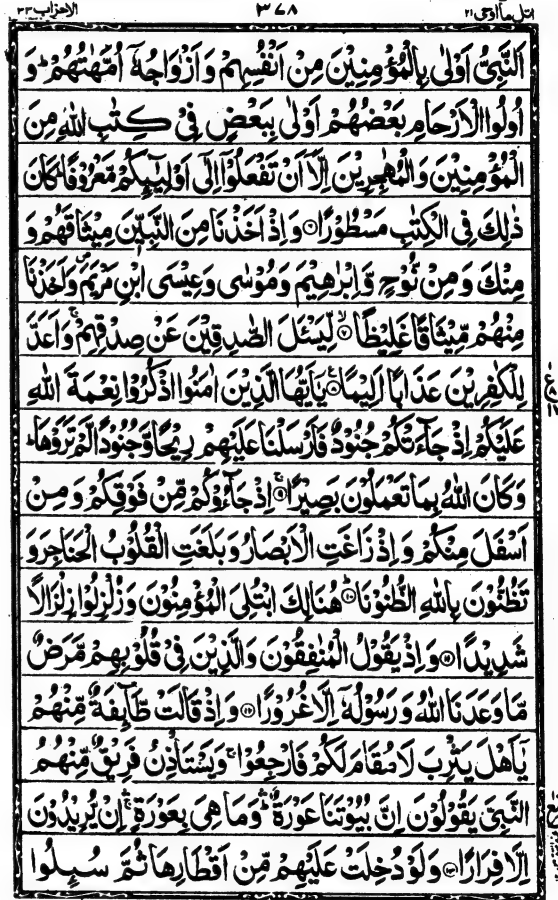 اتل ما اوحی ٢١ ٣٧٨ الاحزاب ٣٣
اَلنَّبِیُّ اَوْلٰی بِالْمُؤْمِنِیْنَ مِنْ اَنْفُسِهِمْ وَ اَزْوَاجُهٗۤ اُمَّهٰتُهُمْ ؕ وَ
اُولُوا الْاَرْحَامِ بَعْضُهُمْ اَوْلٰی بِبَعْضٍ فِیْ کِتٰبِ اللّٰهِ مِنَ
الْمُؤْمِنِیْنَ وَ الْمُهٰجِرِیْنَ اِلَّاۤ اَنْ تَفْعَلُوْۤا اِلٰۤی اَوْلِیٰٓئِکُمْ مَّعْرُوْفًا ؕ کَانَ
ذٰلِکَ فِی الْکِتٰبِ مَسْطُوْرًا ۝۶ وَ اِذْ اَخَذْنَا مِنَ النَّبِیّٖنَ مِیْثَاقَهُمْ وَ
مِنْکَ وَ مِنْ نُّوْحٍ وَّ اِبْرٰهِیْمَ وَ مُوْسٰی وَ عِیْسَی ابْنِ مَرْیَمَ ۪ وَ اَخَذْنَا
مِنْهُمْ مِّیْثَاقًا غَلِیْظًا ۝۷ۙ لِّیَسْـَٔلَ الصّٰدِقِیْنَ عَنْ صِدْقِهِمْ ۚ وَ اَعَدَّ
لِلْکٰفِرِیْنَ عَذَابًا اَلِیْمًا ۝۸ یٰۤاَیُّهَا الَّذِیْنَ اٰمَنُوا اذْکُرُوْا نِعْمَةَ اللّٰهِ
عَلَیْکُمْ اِذْ جَآءَتْکُمْ جُنُوْدٌ فَاَرْسَلْنَا عَلَیْهِمْ رِیْحًا وَّ جُنُوْدًا لَّمْ تَرَوْهَا ؕ
وَ کَانَ اللّٰهُ بِمَا تَعْمَلُوْنَ بَصِیْرًا ۝۹ۚ اِذْ جَآءُوْکُمْ مِّنْ فَوْقِکُمْ وَ مِنْ
اَسْفَلَ مِنْکُمْ وَ اِذْ زَاغَتِ الْاَبْصَارُ وَ بَلَغَتِ الْقُلُوْبُ الْحَنَاجِرَ وَ
تَظُنُّوْنَ بِاللّٰهِ الظُّنُوْنَا ۝۱۰ؕ هُنَالِکَ ابْتُلِیَ الْمُؤْمِنُوْنَ وَ زُلْزِلُوْا زِلْزَالًا
شَدِیْدًا ۝۱۱ وَ اِذْ یَقُوْلُ الْمُنٰفِقُوْنَ وَ الَّذِیْنَ فِیْ قُلُوْبِهِمْ مَّرَضٌ
مَّا وَعَدَنَا اللّٰهُ وَ رَسُوْلُهٗۤ اِلَّا غُرُوْرًا ۝۱۲ وَ اِذْ قَالَتْ طَّآئِفَةٌ مِّنْهُمْ
یٰۤاَهْلَ یَثْرِبَ لَا مُقَامَ لَکُمْ فَارْجِعُوْا ۚ وَ یَسْتَاْذِنُ فَرِیْقٌ مِّنْهُمُ
النَّبِیَّ یَقُوْلُوْنَ اِنَّ بُیُوْتَنَا عَوْرَةٌ ۛؕ وَ مَا هِیَ بِعَوْرَةٍ ۛۚ اِنْ یُّرِیْدُوْنَ
اِلَّا فِرَارًا ۝۱۳ وَ لَوْ دُخِلَتْ عَلَیْهِمْ مِّنْ اَقْطَارِهَا ثُمَّ سُىِٕلُوا